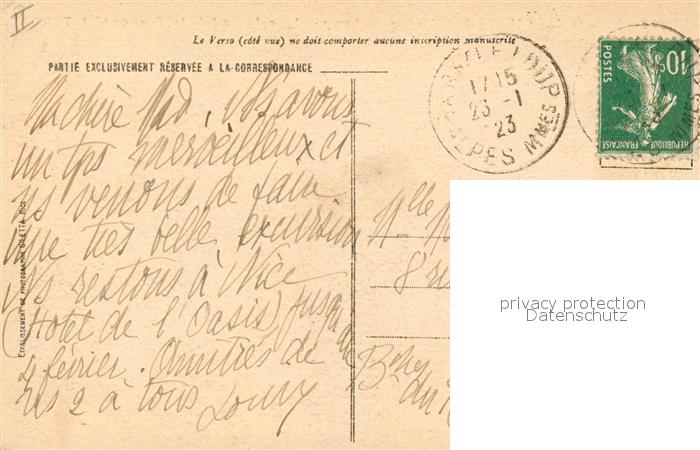 II
Le Verso (côté vue) ne doit comporter aucune inscription manuscrite
PARTIE EXCLUSIVEMENT RÉSERVÉE A LA CORRESPONDANCE
LE LOUP
17 15
23 -1
23
ALPES MMES
POSTES
10c
RÉPUBLIQUE FRANÇAISE
Ma chère Mad, Ns avons
un tps merveilleux et
ns venons de faire
une très belle excursion
Ns restons à Nice
(Hotel de l'Oasis) jusqu'au
4 février. Amitiés de
ns 2 à tous
ETABLISSEMENT DE PHOTOGRAPHIE GILETTA NICE
Mlle
8 r
du
privacy protection
Datenschutz